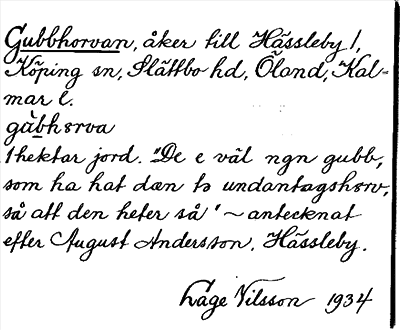 Gubbhorvan, åker till Hässleby 1,
Köping sn, Slättbo hd, Öland, Kal-
mar l.
gàbhɵrva
1 hektar jord. "De e väl ngn gubb,
som ha hat dæn to undantagshɵrv,
så att den heter så" ~ antecknat
efter August Andersson, Hässleby.
Åge Nilsson 1934